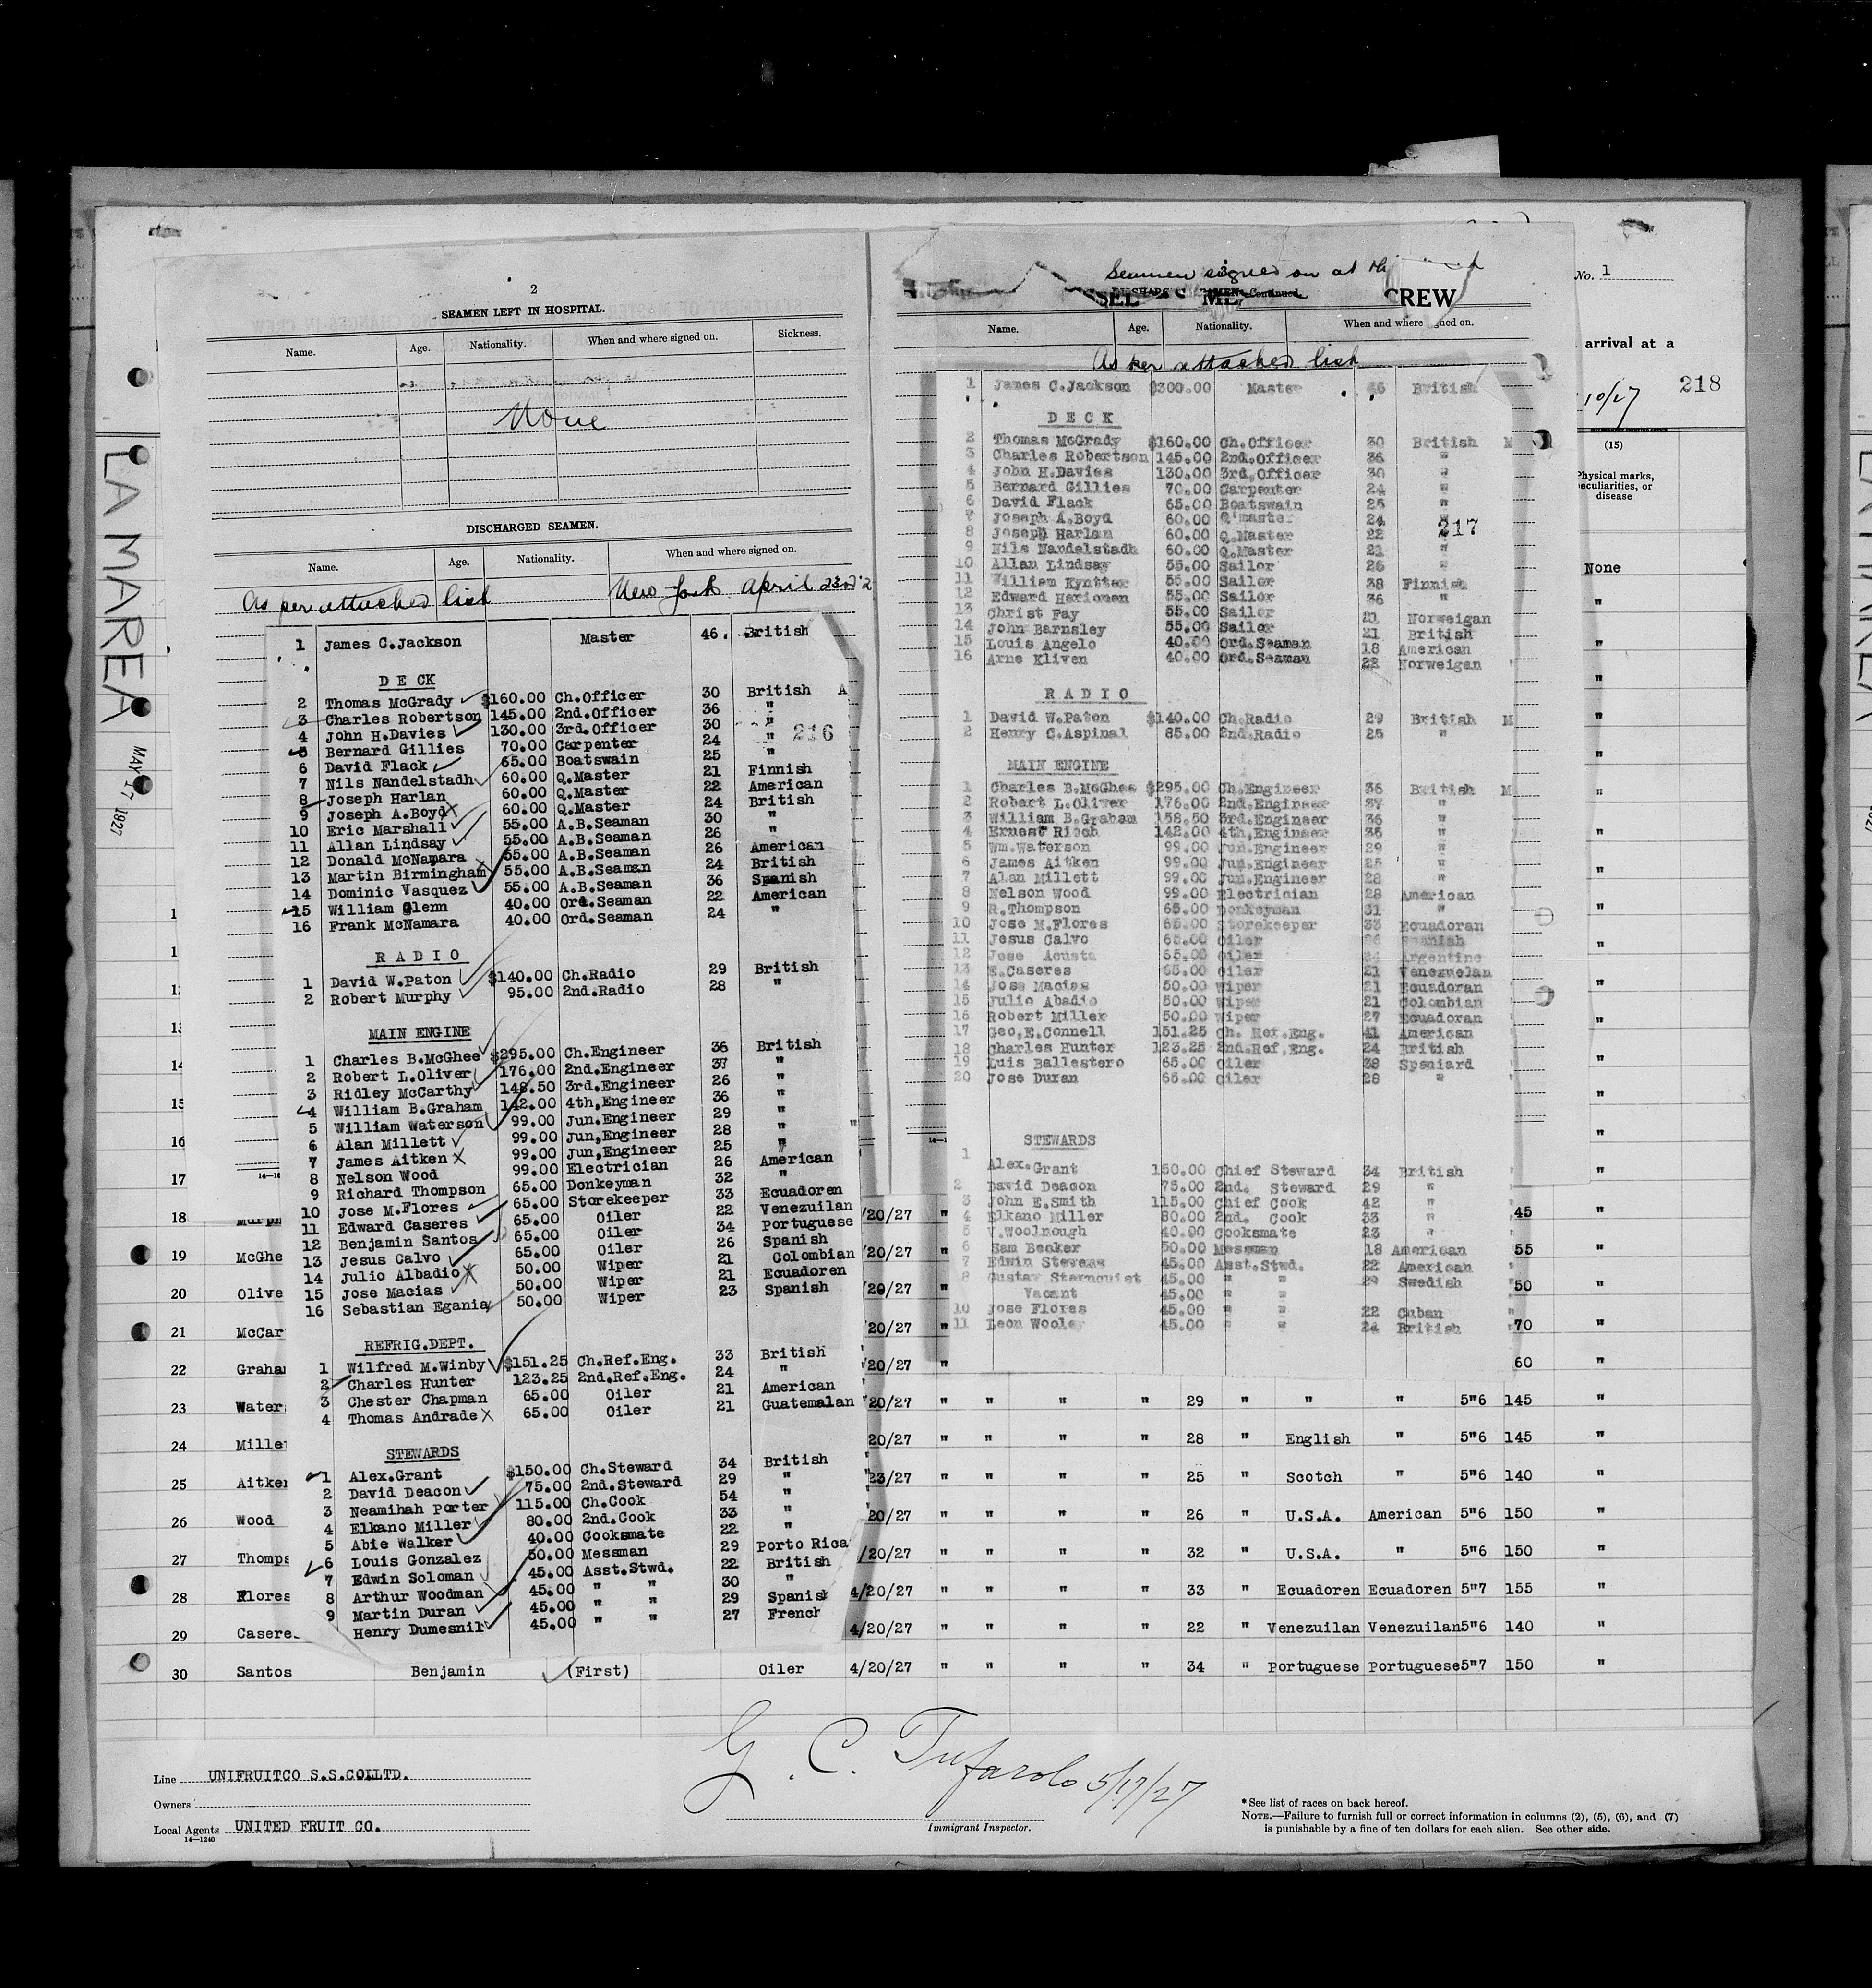 2
SEAMEN LEFT IN HOSPITAL.
Name. Age. Nationality. When and where signed on. Sickness.
None
DISCHARGED SEAMEN.
Name. Age. Nationality. When and where signed on.
As per attached list New York April 23rd '2
1 James C.Jackson Master 46. British
DECK
2 Thomas McGrady $160.00 Ch.Officer 30 British
3 Charles Robertson 145.00 2nd.Officer 36 "
4 John H.Davies 130.00 3rd.Officer 30 "
216
5 Bernard Gillies 70.00 Carpenter 24 "
6 David Flack 65.00 Boatswain 25 "
7 Nils Nandelstadh 60.00 Q.Master 21 Finnish
8 Joseph Harlan 60.00 Q.Master 22 American
9 Joseph A.Boyd 60.00 Q.Master 24 British
10 Eric Marshall 55.00 A.B.Seaman 30 "
11 Allan Lindsay 55.00 A.B.Seaman 26 "
12 Donald McNamara 55.00 A.B.Seaman 26 American
13 Martin Birmingham 55.00 A.B.Seaman 24 British
14 Dominic Vasquez 55.00 A.B.Seaman 36 Spanish
15 William Glenn 40.00 Ord.Seaman 22 American
16 Frank McNamara 40.00 Ord.Seaman 24 "
RADIO
1 David W.Paton $140.00 Ch.Radio 29 British
2 Robert Murphy 95.00 2nd.Radio 28 "
MAIN ENGINE
1 Charles B.McGhee $295.00 Ch.Engineer 36 British
2 Robert L.Oliver 176.00 2nd.Engineer 37 "
3 Ridley McCarthy 148.50 3rd.Engineer 26 "
4 William B.Graham 142.00 4th,Engineer 36 "
5 William Waterson 99.00 Jun.Engineer 29 "
6 Alan Millett 99.00 Jun,Engineer 28 "
7 James Aitken 99.00 Jun,Engineer 25 "
8 Nelson Wood 99.00 Electrician 26 American
9 Richard Thompson 65.00 Donkeyman 32 "
10 Jose M.Flores 65.00 Storekeeper 33 Ecuadoren
11 Edward Caseres 65.00 Oiler 22 Venezuilan
12 Benjamin Santos 65.00 Oiler 34 Portuguese
13 Jesus Calvo 65.00 Oiler 26 Spanish
14 Julio Albadio 50.00 Wiper 21 Colombian
15 Jose Macias 50.00 Wiper 21 Ecuadoren
16 Sebastian Egania 50.00 Wiper 23 Spanish
REFRIG.DEPT.
1 Wilfred M.Winby $151.25 Ch.Ref.Eng. 33 British
2 Charles Hunter 123.25 2nd.Ref.Eng. 24 "
3 Chester Chapman 65.00 Oiler 21 American
4 Thomas Andrade 65.00 Oiler 21 Guatemalan
STEWARDS
1 Alex.Grant $150.00 Ch.Steward 34 British
2 David Deacon 75.00 2nd.Steward 29 "
3 Neamihah Porter 115.00 Ch.Cook 54 "
4 Elkano Miller 80.00 2nd.Cook 33 "
5 Abie Walker 40.00 Cooksmate 22 "
6 Louis Gonzalez 50.00 Messman 29 Porto Rica
7 Edwin Soloman 45.00 Asst.Stwd. 22 British
8 Arthur Woodman 45.00 " " 30 "
9 Martin Duran 45.00 " " 29 Spanish
Henry Dumesnil 45.00 " " 27 French
Seamen signed on at
3
CREW
Name. Age. Nationality. When and where signed on.
As per attached list
1 James C.Jackson $300.00 Master 46 British
DECK
2 Thomas McGrady $160.00 Ch.Officer 30 British M
3 Charles Robertson 145.00 2nd.Officer 36 "
4 John H.Davies 130.00 3rd.Officer 30 "
5 Bernard Gillies 70.00 Carpenter 24 "
6 David Flack 65.00 Boatswain 25 "
7 Joseph A.Boyd 60.00 Q'master 24 "
217
8 Joseph Harlan 60.00 Q.Master 22
9 Nils Nandelstadh 60.00 Q.Master 21 "
10 Allan Lindsay 55.00 Sailor 26 "
11 William Kyntter 55.00 Sailor 38 Finnish
12 Edward Harionen 55.00 Sailor 36 "
13 Christ Fay 55.00 Sailor 21 Norweigan
14 John Barnsley 55.00 Sailor 21 British
15 Louis Angelo 40.00 Ord.Seaman 18 American
16 Arne Kliven 40.00 Ord.Seaman 22 Norweigan
RADIO
1 David W.Paton $140.00 Ch.Radio 29 British M
2 Henry C.Aspinal 85.00 2nd.Radio 25 "
MAIN ENGINE
1 Charles B.McGhee $295.00 Ch.Engineer 36 British M
2 Robert L.Oliver 176.00 2nd.Engineer 37 "
3 William B.Graham 158.50 3rd.Engineer 36 "
4 Ernest Rioch 142.00 4th,Engineer 35 "
5 Wm.Waterson 99.00 Jun.Engineer 29 "
6 James Aitken 99.00 Jun.Engineer 25 "
7 Alan Millett 99.00 Jun.Engineer 28 "
8 Nelson Wood 99.00 Electrician 28 American
9 R.Thompson 65.00 Donkeyman 31 "
10 Jose M.Flores 65.00 Storekeeper 33 Ecuadoran
11 Jesus Calvo 65.00 Oiler 26 Spanish
12 Jose Acusta 65.00 Oiler 24 Argentine
13 E.Caseres 65.00 Oiler 21 Venezuelan
14 Jose Macias 50.00 Wiper 21 Ecuadoran
15 Julio Abadio 50.00 Wiper 21 Colombian
16 Robert Miller 50.00 Wiper 27 Ecuadoran
17 Geo,E.Connell 151.25 Ch. Ref.Eng. 41 American
18 Charles Hunter 123.25 2nd.Ref,Eng. 24 British
19 Luis Ballestero 65.00 Oiler 38 Spaniard
20 Jose Duran 65.00 Oiler 28 "
STEWARDS
1 Alex.Grant 150.00 Chief Steward 34 British
2 David Deacon 75.00 2nd. Steward 29 "
3 John E.Smith 115.00 Chief Cook 42 "
4 Elkano Miller 80.00 2nd. Cook 33 "
5 V.Woolnough 40.00 Cooksmate 23 "
6 Sam Becker 50.00 Messman 18 American
7 Edwin Stevens 45.00 Asst.Stwd. 22 American
8 Gustav Sternquist 45.00 " " 29 Swedish
Vacant 45.00 " "
10 Jose Flores 45.00 " " 22 Cuban
11 Leon Wooley 45.00 " " 24 British
No. 1
arrival at a
10/27 218
(15)
Physical marks, peculiarities, or disease
None
LA MAREA MAY 17 1927
18 Murph /20/27 " 45 "
19 McGhe /20/27 " 55 "
20 Olive /20/27 " 50 "
21 McCar /20/27 " 70 "
22 Graha /20/27 " 60 "
23 Water /20/27 " " " " 29 " " " 5"6 145 "
24 Mille 20/27 " " " " 28 " English " 5"6 145 "
25 Aitke /23/27 " " " " 25 " Scotch " 5"6 140 "
26 Wood 20/27 " " " " 26 " U.S.A. American 5"6 150 "
27 Thomps /20/27 " " " " 32 " U.S.A. " 5"6 150 "
28 Flores 4/20/27 " " " " 33 " Ecuadoren Ecuadoren 5"7 155 "
29 Casere 4/20/27 " " " " 22 " Venezuilan Venezuilan 5"6 140 "
30 Santos Benjamin (First) Oiler 4/20/27 " " " " 34 " Portuguese Portuguese 5"7 150 "
G. C. Tufarolo 5/17/27
Immigrant Inspector.
Line UNIFRUITCO S.S.CO.LTD.
Owners
Local Agents UNITED FRUIT CO.
14—1240
* See list of races on back hereof.
NOTE.—Failure to furnish full or correct information in columns (2), (5), (6), and (7)
is punishable by a fine of ten dollars for each alien. See other side.